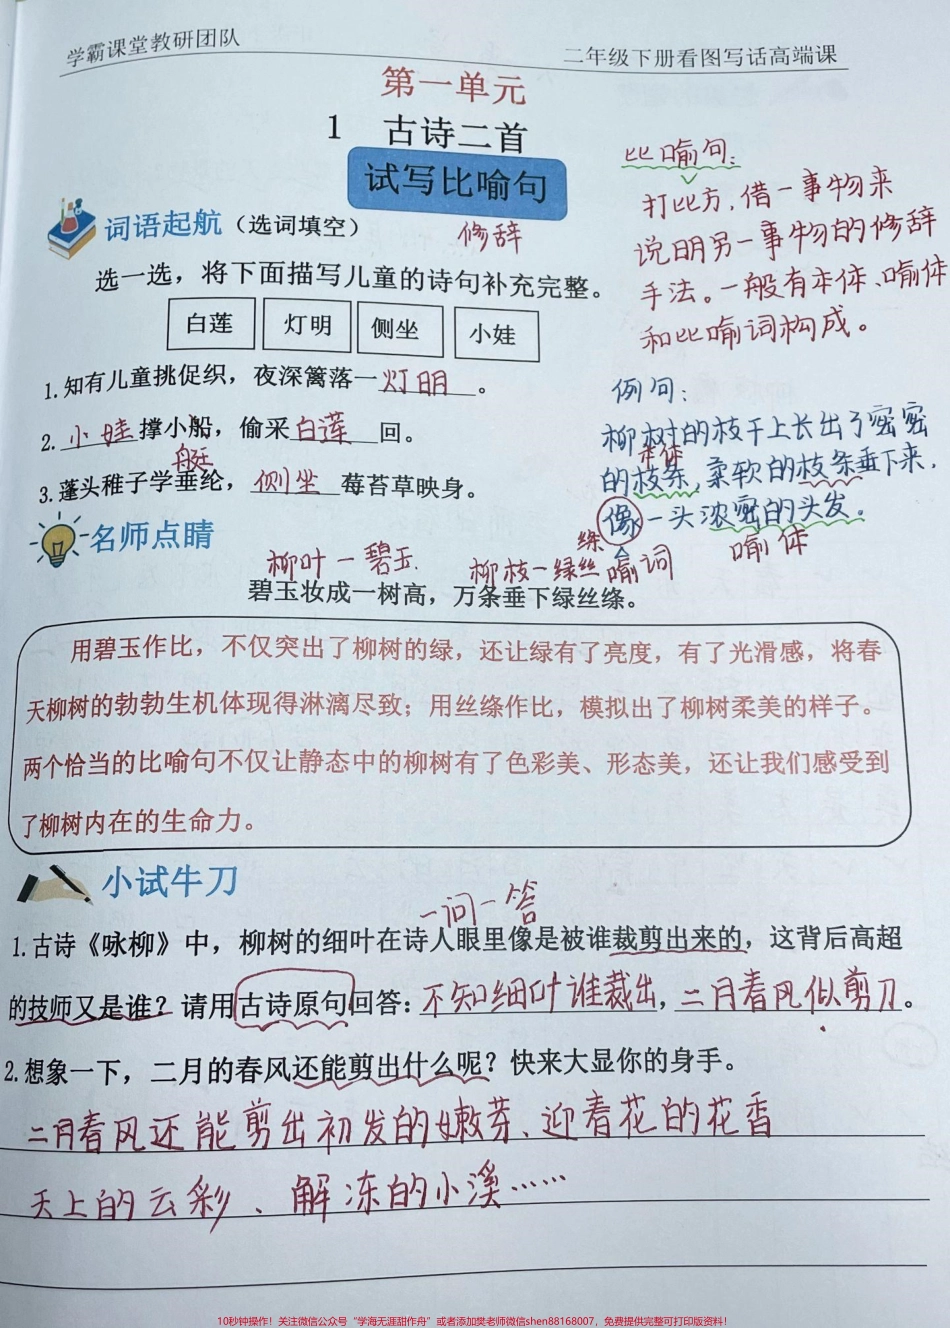 学霸课堂教研团队
二年级下册看图写话高端课
第一单元
1 古诗二首
试写比喻句
修辞
比喻句：
打比方，借一事物来
说明另一事物的修辞
手法。一般有本体、喻体
和比喻词构成。
词语起航（选词填空）
选一选，将下面描写儿童的诗句补充完整。
白莲 灯明 侧坐 小娃
1.知有儿童挑促织，夜深篱落一灯明。
2.小娃撑小船，偷采白莲回。
艇
3.蓬头稚子学垂纶，侧坐莓苔草映身。
例句：
柳树的枝干上长出了密密
本体
的枝条，柔软的枝条垂下来，
像一头浓密的头发。
喻词
喻体
名师点睛
柳叶—碧玉
柳枝—绿丝
绦
碧玉妆成一树高，万条垂下绿丝绦。
用碧玉作比，不仅突出了柳树的绿，还让绿有了亮度，有了光滑感，将春
天柳树的勃勃生机体现得淋漓尽致；用丝绦作比，模拟出了柳树柔美的样子。
两个恰当的比喻句不仅让静态中的柳树有了色彩美、形态美，还让我们感受到
了柳树内在的生命力。
小试牛刀
一问一答
1.古诗《咏柳》中，柳树的细叶在诗人眼里像是被谁裁剪出来的，这背后高超
的技师又是谁？请用古诗原句回答：不知细叶谁裁出，二月春风似剪刀。
2.想象一下，二月的春风还能剪出什么呢？快来大显你的身手。
二月春风还能剪出初发的嫩芽、迎春花的花香
天上的云彩、解冻的小溪……
10秒钟操作！关注微信公众号“学海无涯甜作舟”或者添加樊老师微信shen88168007，免费提供完整可打印版资料！